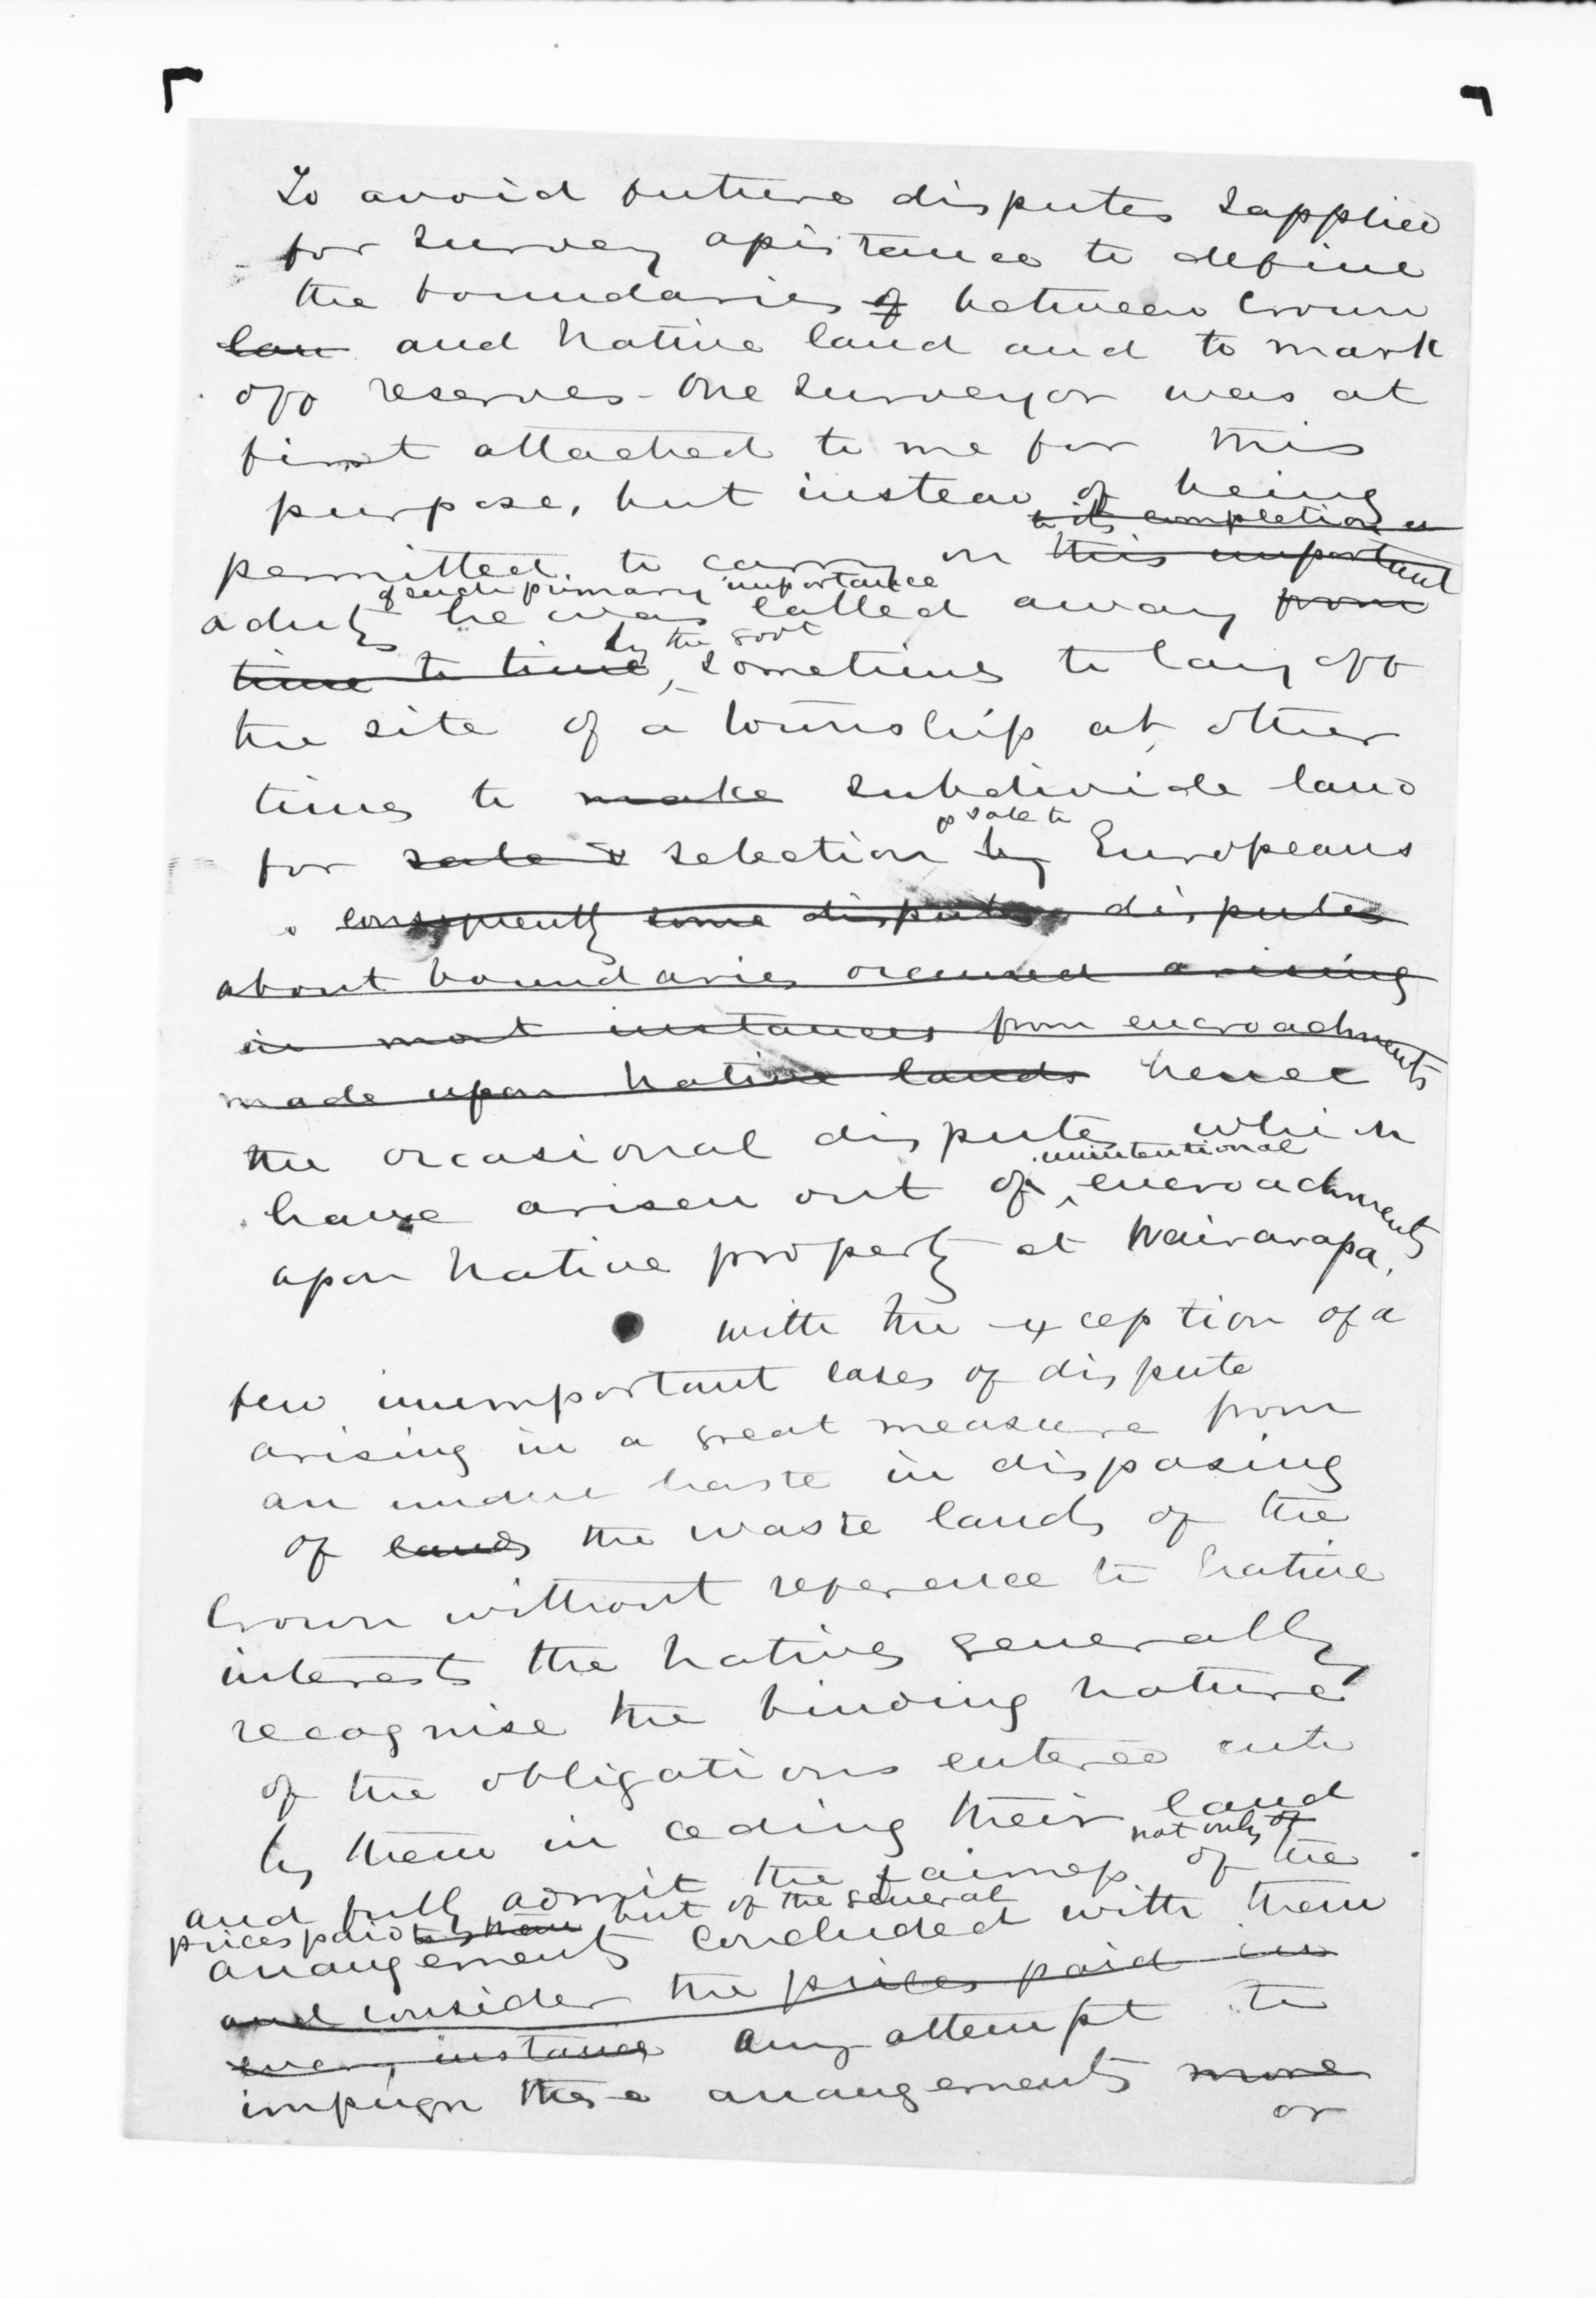 To avoid future disputes I applied
for survey assistance to define
the boundaries of between Crown
lan and Native land and to mark
off reserves - One surveyor was at
first attached to me for this
purpose, but instead of being
to its completion a
permitted to carry on this important
of such primary importance
a duty he was called away from
by the Govt
time to time, sometimes to lay off
the site of a township at other
times to make subdivide land
& sale to
for sale & selection by Europeans
consequently some disputes disputes
about boundaries occurred arising
in most instances from encroachments
made upon Native lands hence
the occasional disputes which
unintentional
have arisen out of encroachments
upon Native property at Wairarapa.
With the exception of a
few unimportant cases of dispute
arising in a great measure from
an undue haste in disposing
of lands the waste lands of the
Crown without reference to Native
interests the Natives generally
recognise the binding nature
of the obligations entered into
by them in ceding their land
not only of
and fully admit the fairness of the
prices paid to them but of the general
arrangements concluded with them
and consider the prices paid in
every instance Any attempt to
impugn these arrangements more
or